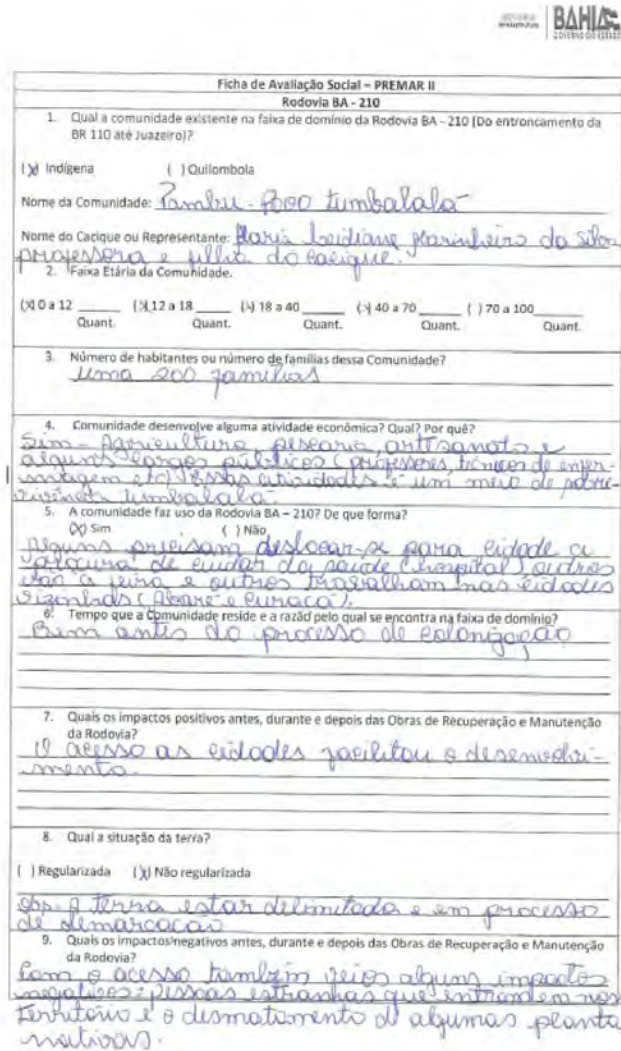 BAHIA
GOVERNO DO ESTADO
Ficha de Avaliação Social – PREMAR II
Rodovia BA - 210
1. Qual a comunidade existente na faixa de domínio da Rodovia BA - 210 (Do entroncamento da
BR 110 até Juazeiro)?
(X) Indígena ( ) Quilombola
Nome da Comunidade: Pambu - Povo Tumbalalá
Nome do Cacique ou Representante: Maria Leidiane Marinheiro da Silva
professora e filha do cacique.
2. Faixa Etária da Comunidade.
(X) 0 a 12 ______ (X) 12 a 18 ______ (X) 18 a 40 ______ (X) 40 a 70 ______ ( ) 70 a 100______
Quant. Quant. Quant. Quant. Quant.
3. Número de habitantes ou número de famílias dessa Comunidade?
uma 200 famílias
4. Comunidade desenvolve alguma atividade econômica? Qual? Por quê?
Sim - Agricultura, pescaria, artesanato e
alguns cargos públicos (professores, técnicos de enfer-
magem etc) Essas atividades é um meio de sobre-
vivência tumbalalá.
5. A comunidade faz uso da Rodovia BA – 210? De que forma?
(X) Sim ( ) Não
Alguns precisam deslocar-se para cidade a
procura de cuidar da saúde (hospital) outros
vão a feira e outros trabalham nas cidades
vizinhas (Abaré e Curaçá).
6. Tempo que a Comunidade reside e a razão pelo qual se encontra na faixa de domínio?
Bem antes do processo de colonização
7. Quais os impactos positivos antes, durante e depois das Obras de Recuperação e Manutenção
da Rodovia?
O acesso as cidades facilitou o desenvolvi-
mento.
8. Qual a situação da terra?
( ) Regularizada (X) Não regularizada
Obs: A terra estar delimitada e em processo
de demarcação
9. Quais os impactos negativos antes, durante e depois das Obras de Recuperação e Manutenção
da Rodovia?
Com o acesso também veios alguns impactos
negativos: pessoas estranhas que entram em nos
território e o desmatamento d algumas planta
nativas.